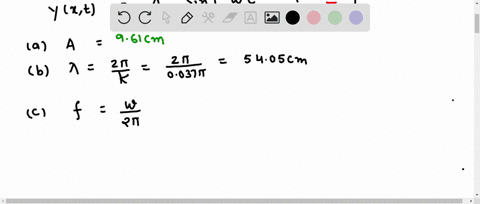 y(x,t)
(a) A = 9.61cm
(b) λ = 2π/K = 2π/0.037π = 54.05cm
(c) f = w/2π